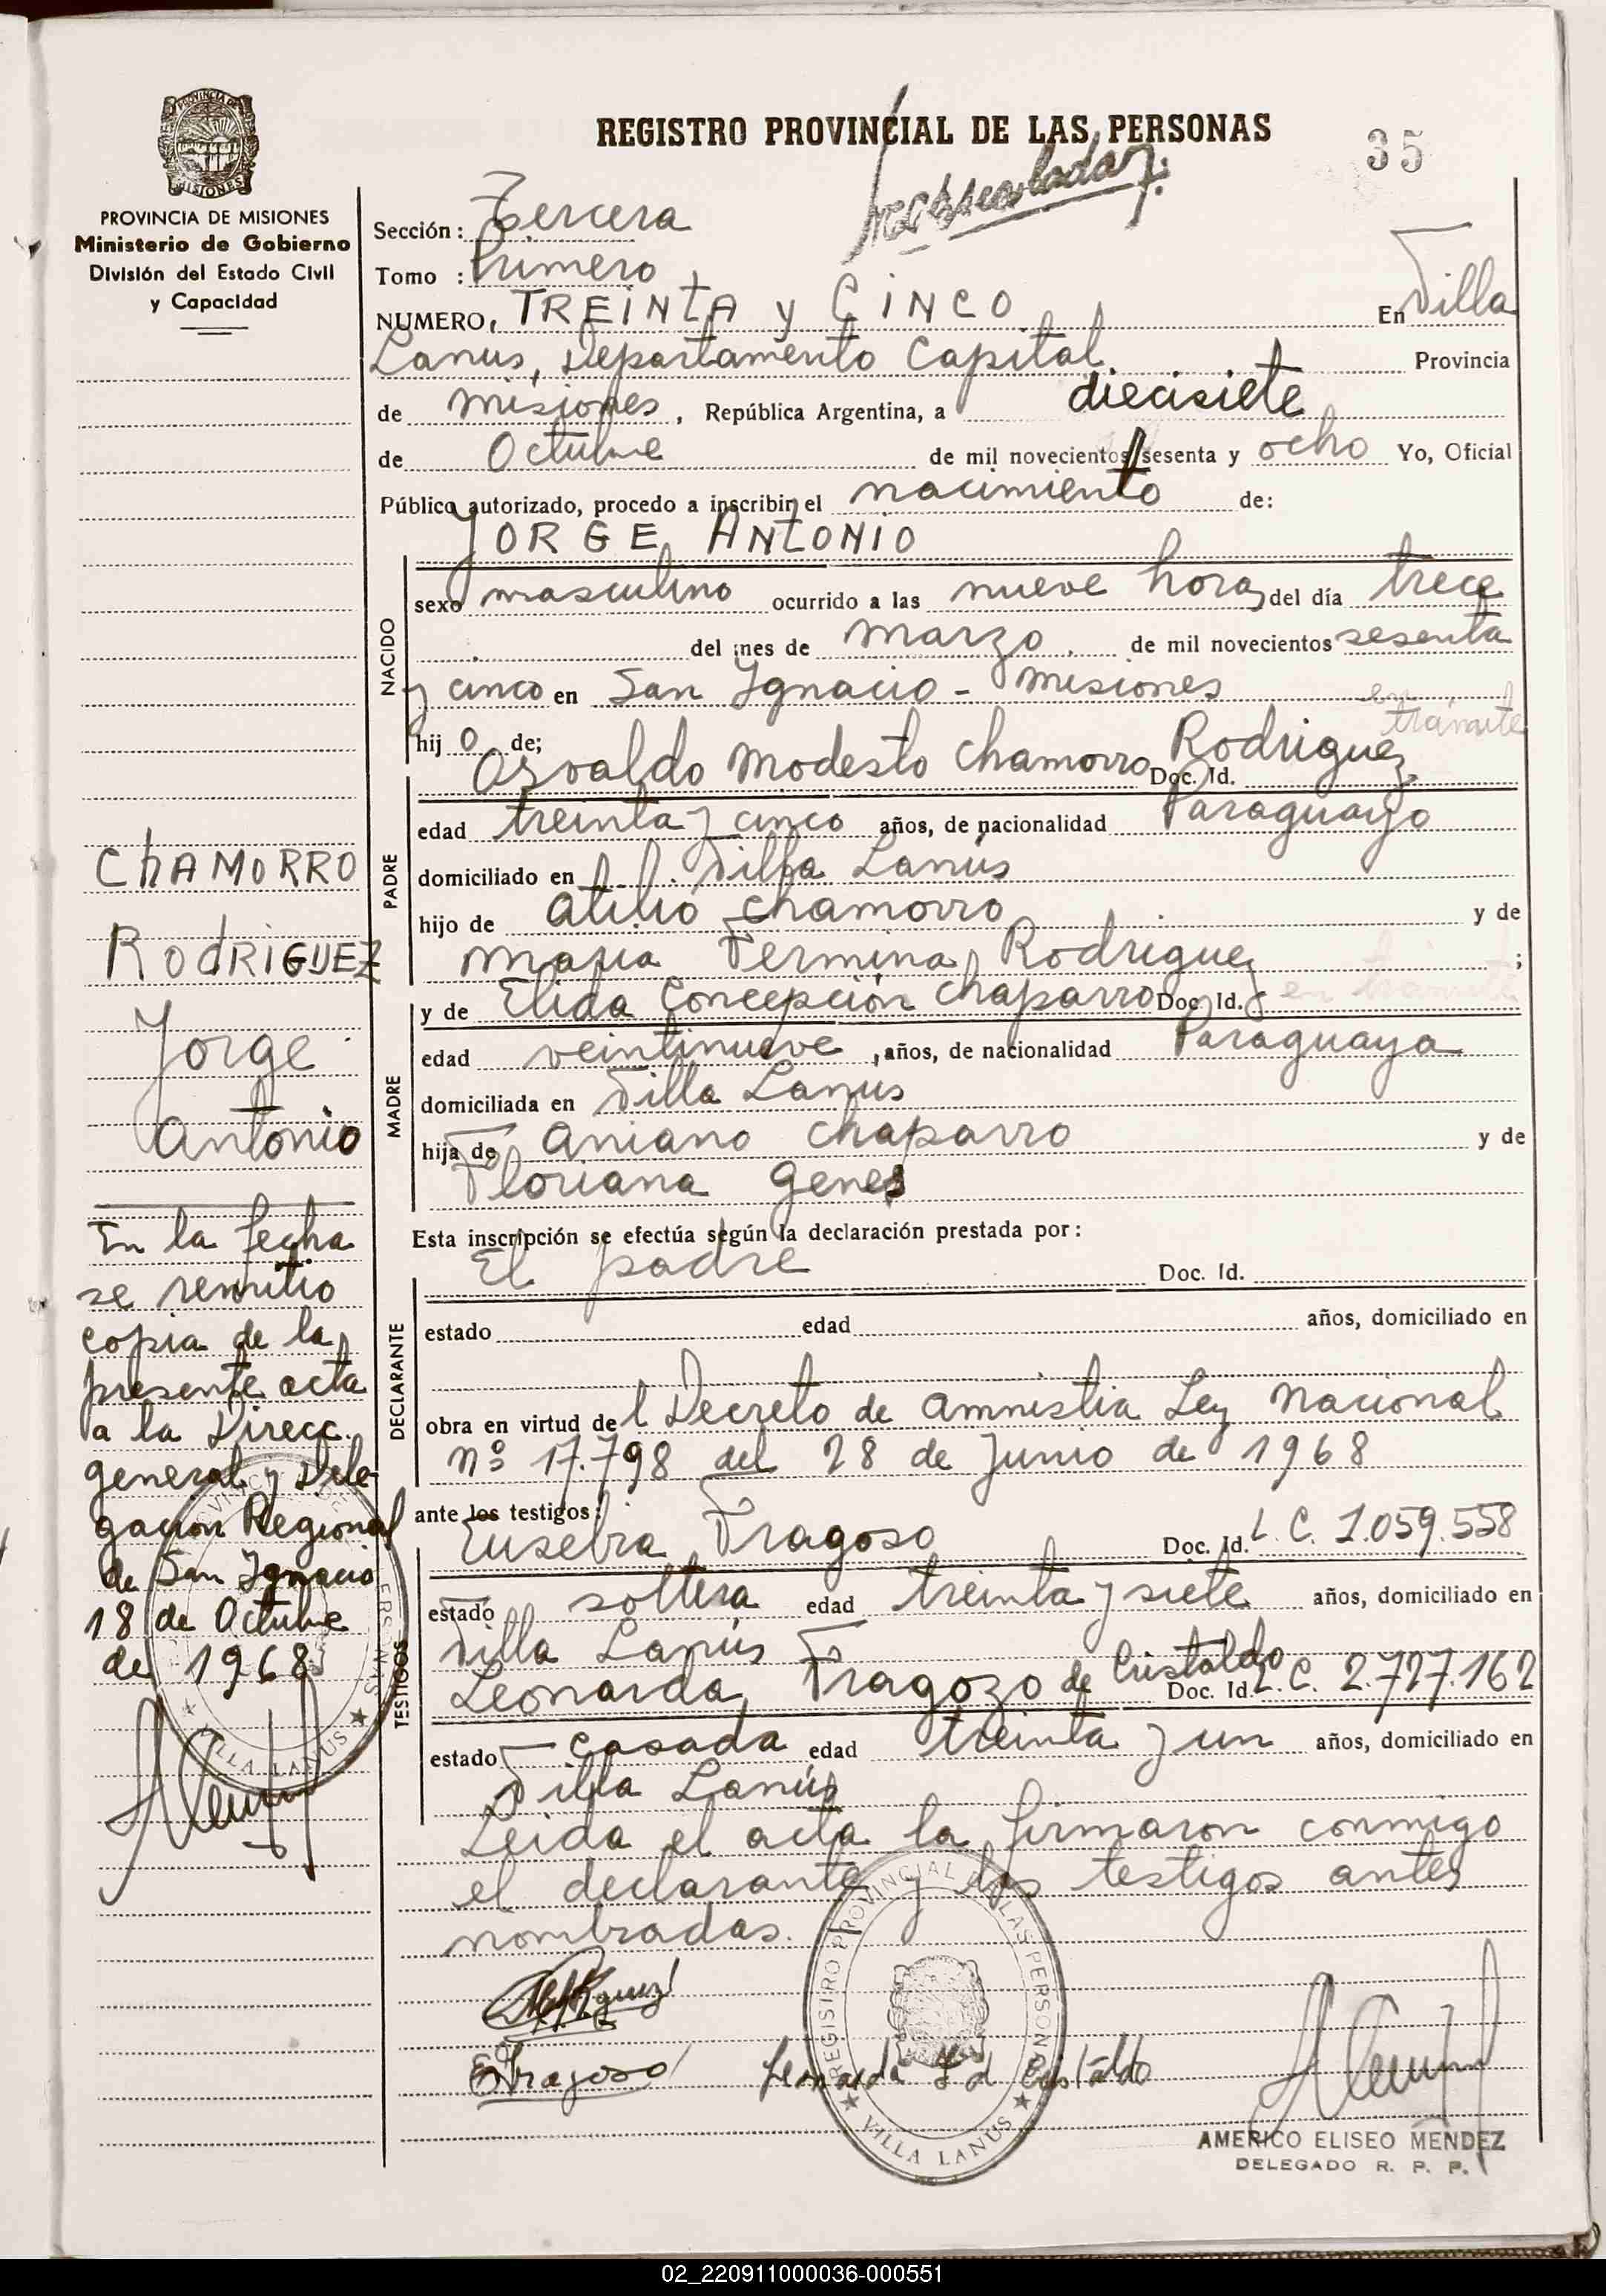 REGISTRO PROVINCIAL DE LAS PERSONAS
35
PROVINCIA DE MISIONES
Ministerio de Gobierno
División del Estado Civil
y Capacidad
Sección: Tercera
Tomo : Primero
NUMERO, TREINTA y CINCO En Villa
Lanus, Departamento Capital. Provincia
de Misiones, República Argentina, a diecisiete
de Octubre de mil novecientos sesenta y ocho Yo, Oficial
Público autorizado, procedo a inscribir el nacimiento de:
JORGE ANTONIO
NACIDO
sexo masculino ocurrido a las nueve horas del día trece
del mes de marzo de mil novecientos sesenta
y cinco en San Ignacio - Misiones
en
trámite
hijo de;
Osvaldo Modesto Chamorro Rodriguez Doc. Id.
PADRE
edad treinta y cinco años, de nacionalidad Paraguayo
domiciliado en Villa Lanús
hijo de Atilio Chamorro y de
Maria Fermina Rodriguez ;
MADRE
y de Elida Concepción Chaparro Doc. Id. en tramite
edad veintinueve, años, de nacionalidad Paraguaya
domiciliada en Villa Lanus
hija de Aniano Chaparro y de
Floriana Genes
Esta inscripción se efectúa según la declaración prestada por:
El padre Doc. Id.
DECLARANTE
estado edad años, domiciliado en
obra en virtud del Decreto de Amnistia Ley Nacional
Nº 17.798 del 28 de Junio de 1968
ante los testigos:
TESTIGOS
Eusebia Fragoso Doc. Id. L.C. 1.059.558
estado soltera edad treinta y siete años, domiciliado en
Villa Lanús
Leonarda Fragozo de Cristaldo Doc. Id. L.C. 2.727.162
estado casada edad treinta y un años, domiciliado en
Villa Lanús
Leida el acta la firmaron conmigo
el declarante y las testigos antes
nombradas.
EFragoso
Leonarda F d Cristaldo
REGISTRO PROVINCIAL DE LAS PERSONAS
VILLA LANUS
AMERICO ELISEO MENDEZ
DELEGADO R. P. P.
CHAMORRO
RODRIGUEZ
Jorge
Antonio
En la fecha
se remitio
copia de la
presente acta
a la Direcc.
general y Dele-
gacion Regional
de San Ignacio
18 de Octubre
de 1968
VILLA LANUS
02_220911000036-000551